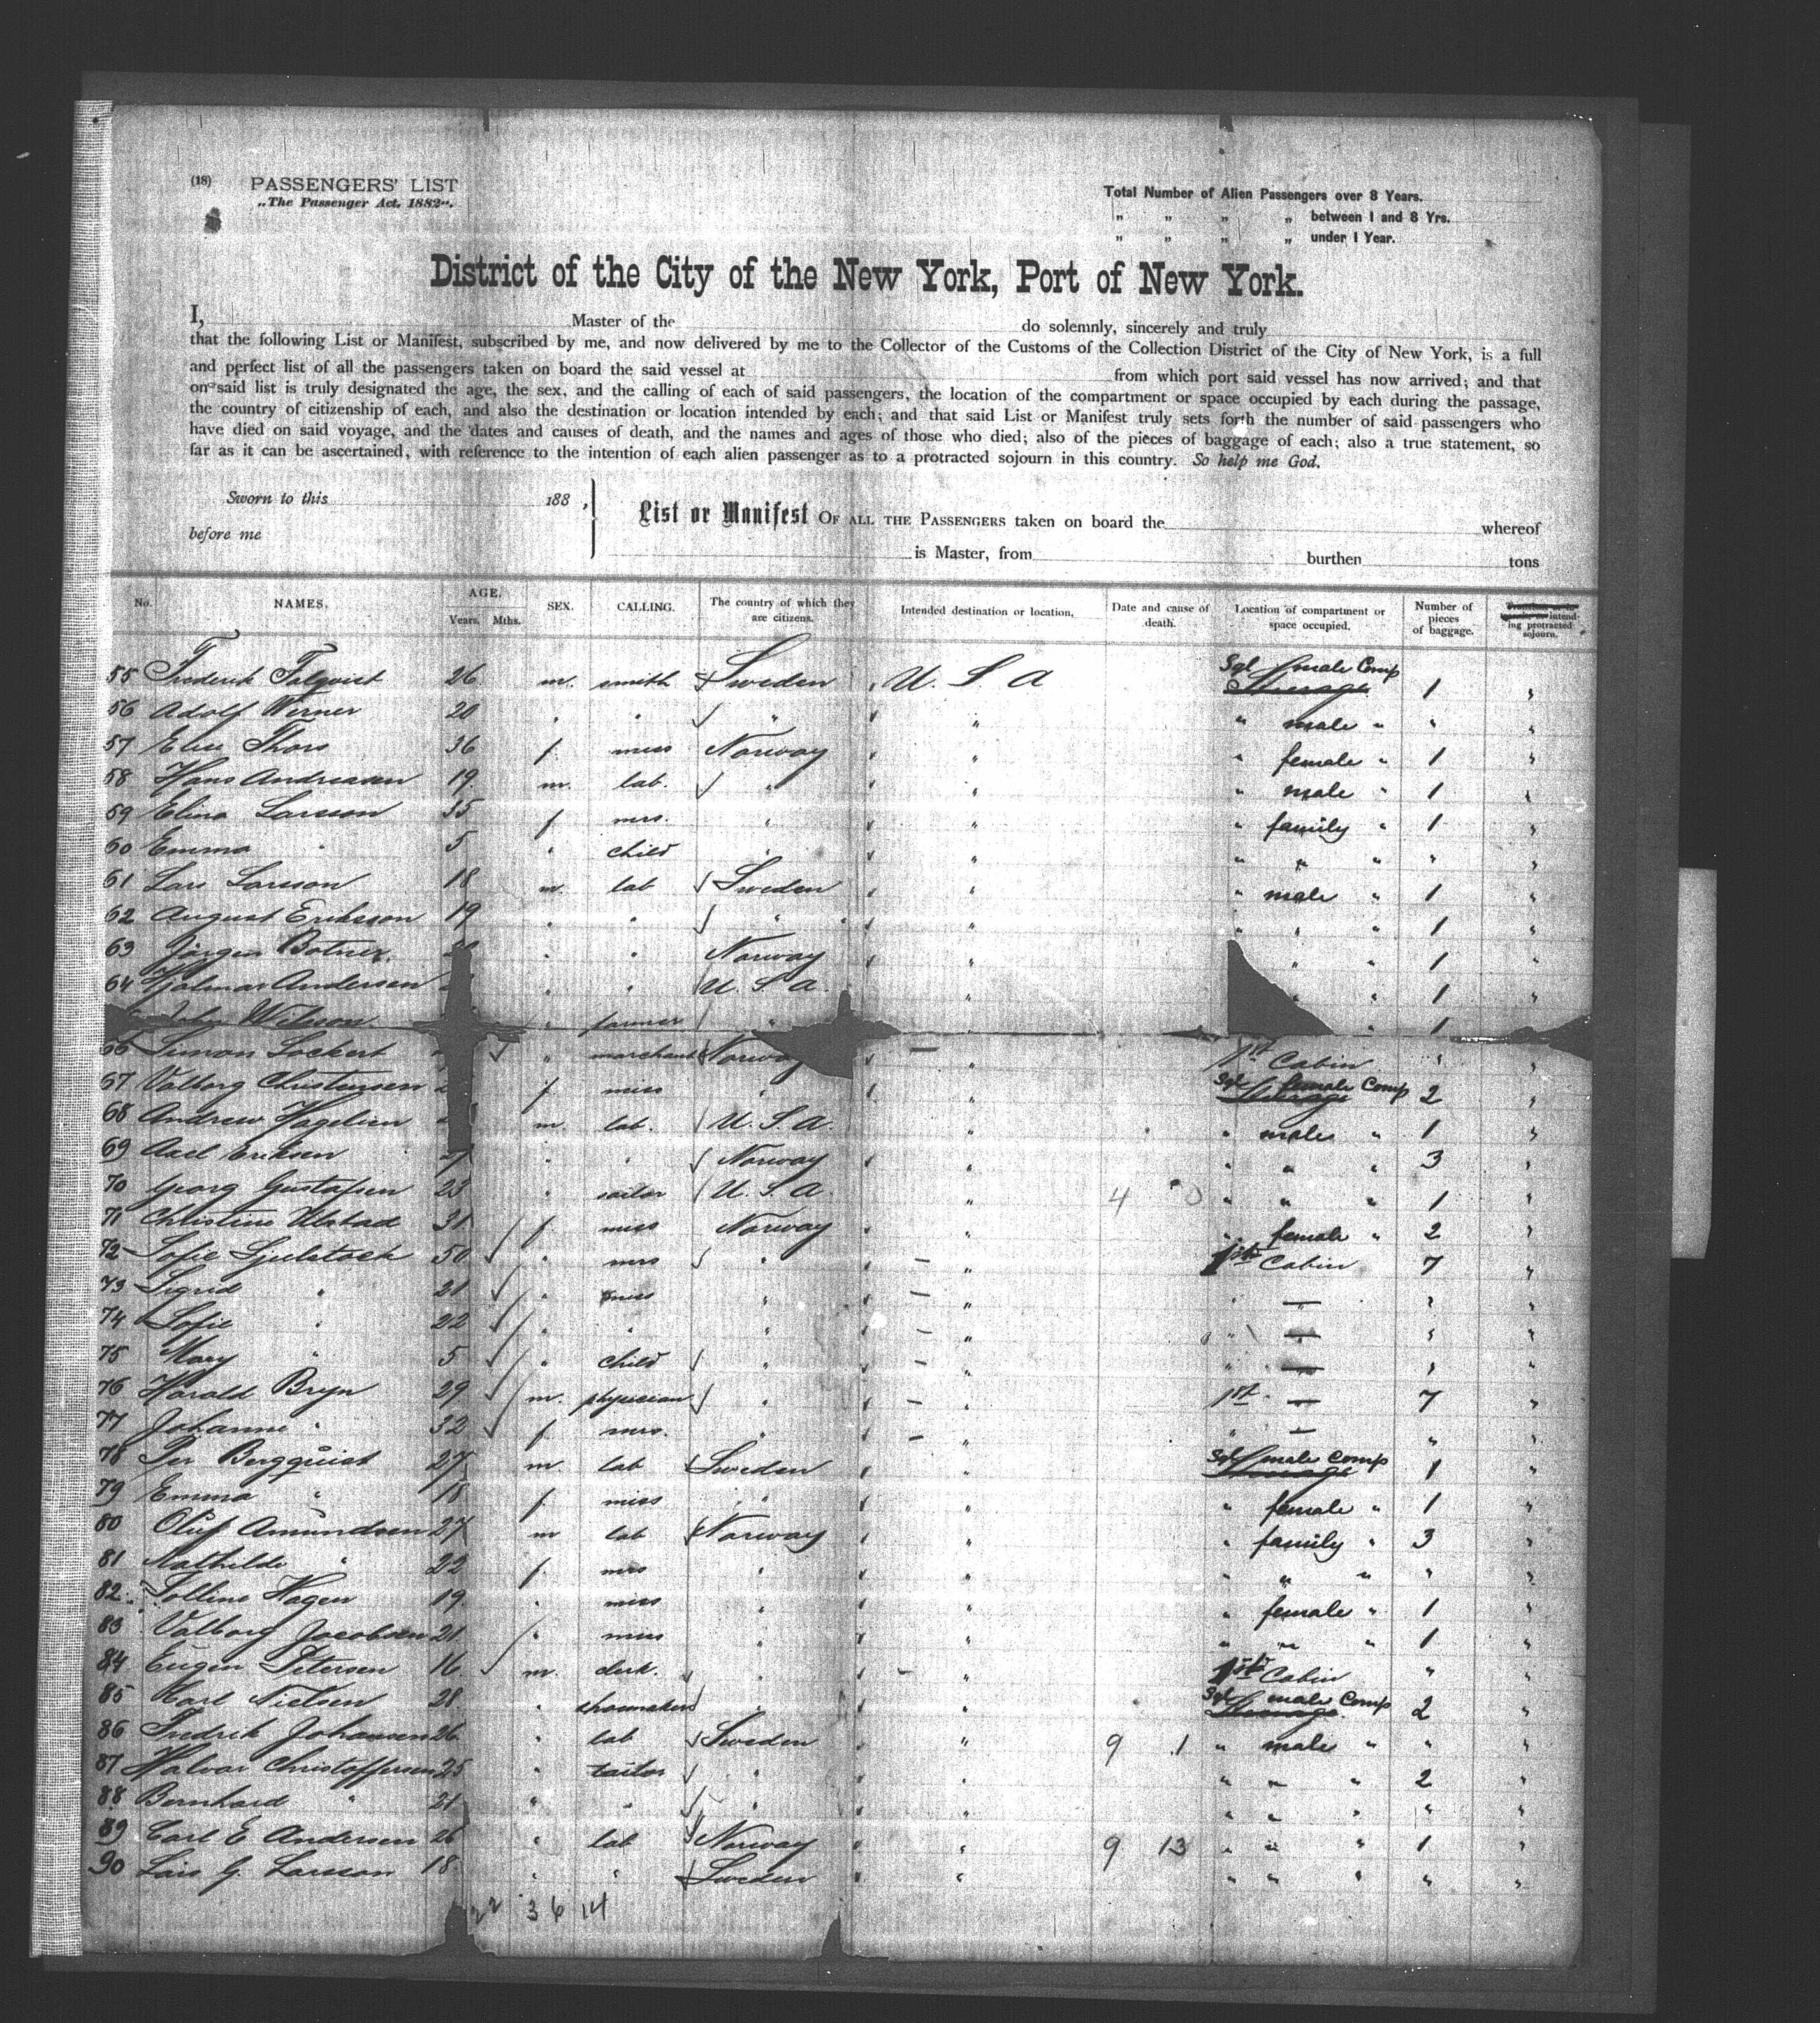 (18) PASSENGERS' LIST
„The Passenger Act, 1882“.
Total Number of Alien Passengers over 8 Years.
„ „ „ „ between 1 and 8 Yrs.
„ „ „ „ under 1 Year.
District of the City of the New York, Port of New York.
I, Master of the do solemnly, sincerely and truly
that the following List or Manifest, subscribed by me, and now delivered by me to the Collector of the Customs of the Collection District of the City of New York, is a full
and perfect list of all the passengers taken on board the said vessel at from which port said vessel has now arrived; and that
on said list is truly designated the age, the sex, and the calling of each of said passengers, the location of the compartment or space occupied by each during the passage,
the country of citizenship of each, and also the destination or location intended by each; and that said List or Manifest truly sets forth the number of said passengers who
have died on said voyage, and the dates and causes of death, and the names and ages of those who died; also of the pieces of baggage of each; also a true statement, so
far as it can be ascertained, with reference to the intention of each alien passenger as to a protracted sojourn in this country. So help me God.
Sworn to this 188 ,
before me
List or Manifest OF ALL THE PASSENGERS taken on board the whereof
is Master, from burthen tons
No. NAMES. AGE. Years. Mths. SEX. CALLING. The country of which they are citizens. Intended destination or location. Date and cause of death. Location of compartment or space occupied. Number of pieces of baggage. intending protracted sojourn.
55 Frederik Falqvist 26 m. smith Sweden U. S. A Sgl male Comp Steerage 1 "
56 Adolf Werner 20 " " " " " male " " "
57 Elise Thors 36 f. miss Norway " " female " 1 "
58 Hans Andreasen 19. m. lab. " " " male " 1 "
59 Elina Larsson 35 f mrs. " " " family " 1 "
60 Emma " 5 " child " " " " " " "
61 Lars Larsson 18 m. lab Sweden " " male " 1 "
62 August Eriksson 19 " " " " " " " 1 "
63 Jörgen Norway " " 1 "
64 Hjalmar Andersen " " U. S. A. " " 1 "
Wilson " farmer " " 1
66 Simon Lockert " marchant Norway " 1st Cabin " "
67 Valborg Christensen f miss " " Sgl female Comp Steerage 2 "
68 Andrew Hagelien m. lab. U. S. A. " " male " 1 "
69 Axel Eriksen " " Norway " " " " 3 "
70 Georg Gustafsen 23 " sailor U. S. A. " 4 0 " " " 1 "
71 Christine Ulstad 31 f miss Norway " " female " 2 "
72 Sofie 50 " mrs " " 1st Cabin 7 "
73 Sigrid " 21 " miss " " " " " "
74 Sofie " 22 " " " " " " " "
75 Mary " 5 " child " " " " " "
76 Harald Bryn 29 m. physician " " 1st " 7 "
77 Johanne " 32 f. mrs. " " " " " "
78 Per Bergquist 27 m. lab Sweden " Sgl male Comp Steerage 1 "
79 Emma " 18 f. miss " " " female " 1 "
80 Oluf Amundsen 27 m lab Norway " " family " 3 "
81 Mathilde " 22 f. mrs " " " " " " "
82 Hagen 19. " miss " " " female " 1 "
83 Valborg Jacobsen 21 " miss " " " " " 1 "
84 Eugen Petersen 16. m. clerk. " " 1st Cabin " "
85 Karl Nielsen 28 " shoemaker " " Sgl male Comp Steerage 2 "
86 Fredrik Johansen 26 " lab Sweden " 9 1 " male " " "
87 Halvor Christoffersen 25 " tailor " " " " " 2 "
88 Bernhard " 21 " " " " " " " " "
89 Carl E Andersen 26 " lab Norway " 9 13 " " " 1 "
90 Lars G. Larsson 18. " " Sweden " " " " " "
22 36 14